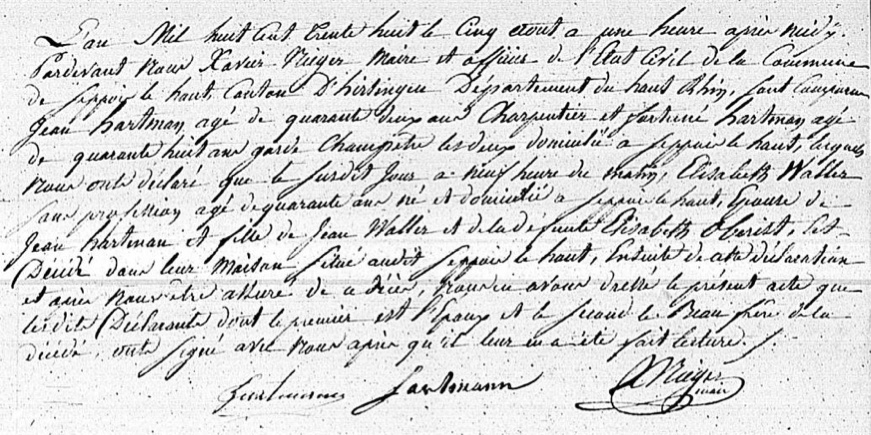 L'an Mil huit Cent trente huit le Cinq août a une heure après midy.
Pardevant nous Xavier Nieger Maire et officier de l'Etat Civil de la Commune
de seppois le haut, Canton D'hirsingen Département du haut Rhin, sont Comparus
Jean hartman, agé de quarante deux ans Charpentier et fortuné hartman agé
de quarante huit ans garde Champêtre les deux domicilié a seppois le haut, lesquels
nous onts déclaré que le susdit Jour a neuf heure du matin, Elisabeth Walter
sans profession, agé de quarante ans né et domicilié a seppois le haut, Epouse de
Jean hartman et fille de Jean Walter et de la défunte Elisabeth Oberist, Est
Décédé dans leur Maison situé audit seppois le haut, Ensuite de cete déclaration
et après nous être assuré de ce décès, nous en avons dressé le présent acte que
lesdits Déclarants dont le premier est l'Epoux et le second le Beau frère de la
décédé, onts signé avec nous après qu'il leur en a été fait lecture.
hartmann
Nieger
maire